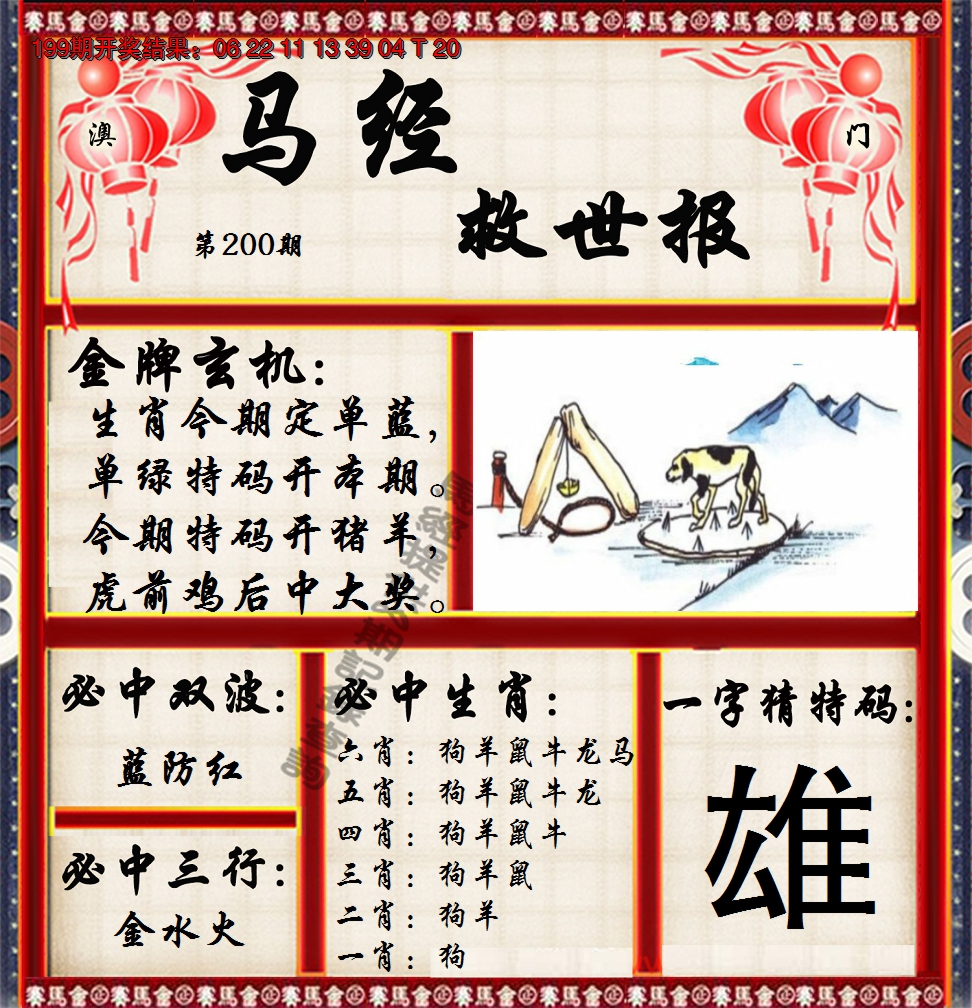 赛馬會㊣赛馬會㊣赛馬會㊣赛馬會㊣赛馬會㊣赛馬會㊣赛馬會㊣
199期开奖结果：06 22 11 13 39 04 T 20
马经
澳
门
救世报
第200期
金牌玄机：
生肖今期定单蓝，
单绿特码开本期。
今期特码开猪羊，
虎前鸡后中大奖。
必中双波：
蓝防红
必中三行：
金水火
必中生肖：
六肖：狗羊鼠牛龙马
五肖：狗羊鼠牛龙
四肖：狗羊鼠牛
三肖：狗羊鼠
二肖：狗羊
一肖：狗
一字猜特码：
雄